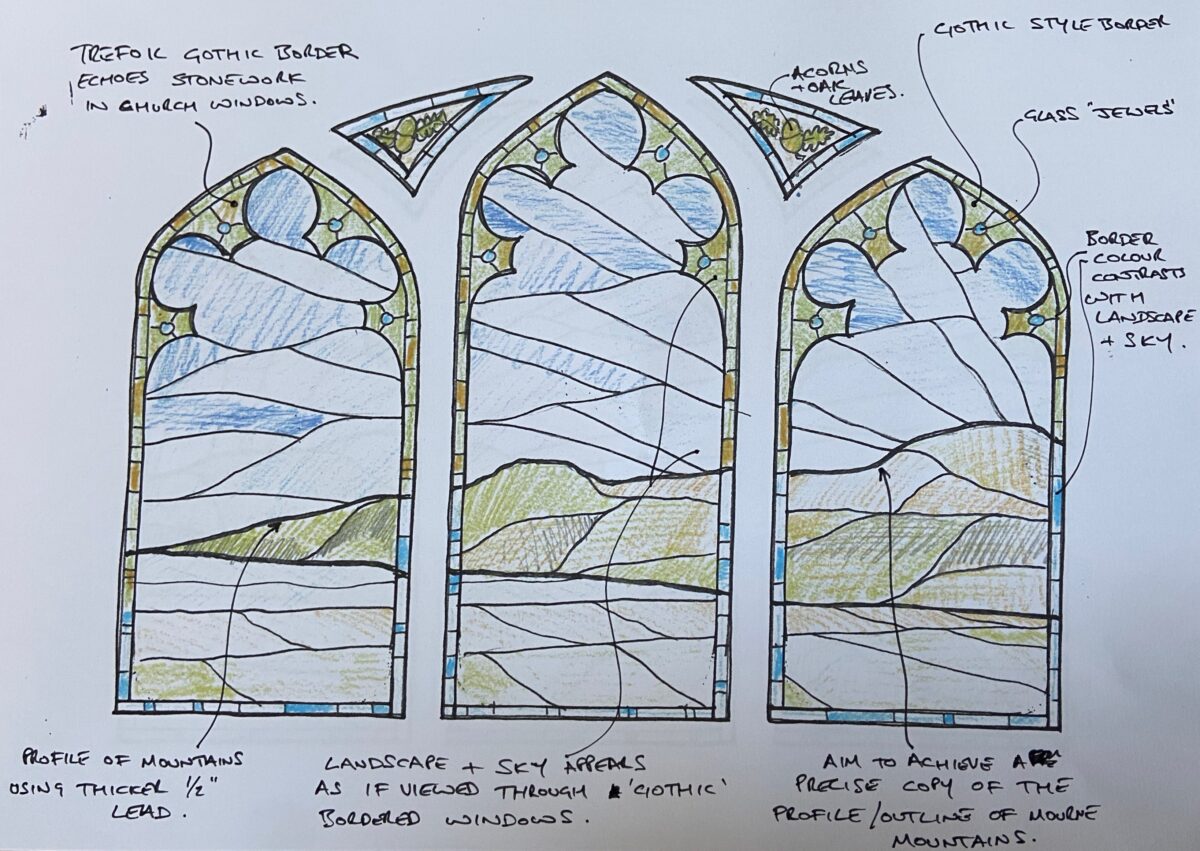 TREFOIL GOTHIC BORDER
ECHOES STONEWORK
IN CHURCH WINDOWS.
ACORNS
+ OAK
LEAVES.
GOTHIC STYLE BORDER
GLASS "JEWELS"
BORDER
COLOUR
CONTRASTS
WITH
LANDSCAPE
+ SKY.
PROFILE OF MOUNTAINS
USING THICKER 1/2"
LEAD.
LANDSCAPE + SKY APPEARS
AS IF VIEWED THROUGH 'GOTHIC'
BORDERED WINDOWS.
AIM TO ACHIEVE A
PRECISE COPY OF THE
PROFILE/OUTLINE OF MOURNE
MOUNTAINS.